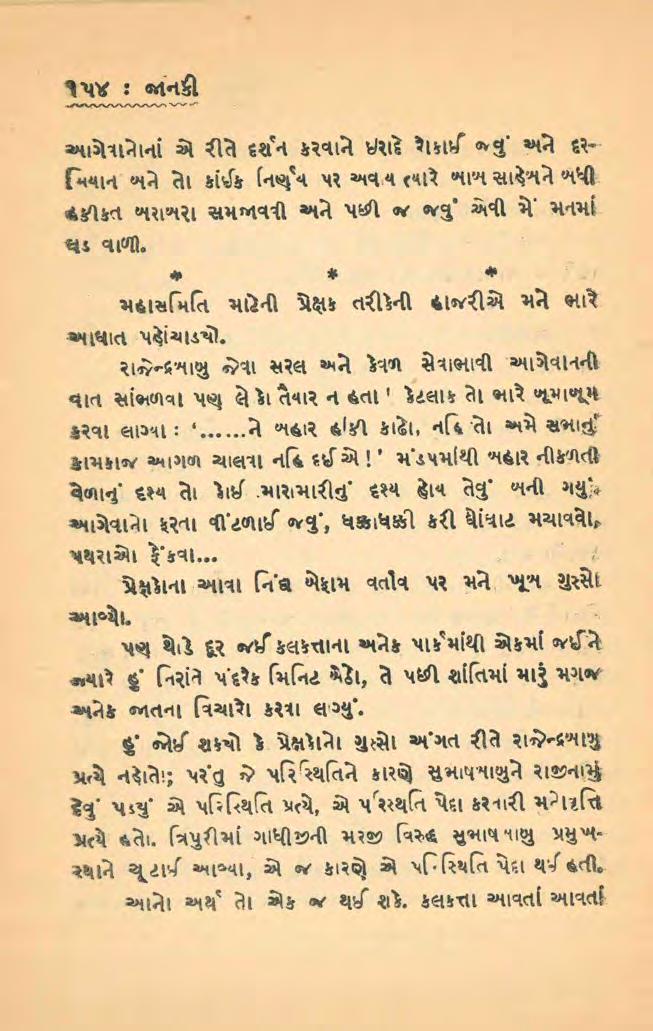 ૧૫૪ : જાનકી
આગેવાનોનાં એ રીતે દર્શન કરવાને ઇરાદે રોકાઈ જવું અને દર-
મિયાન બને તો કાંઈક નિર્ણય પર અવાય ત્યારે બાબાસાહેબને બધી
હકીકત બરાબર સમજાવવી અને પછી જ જવું એવી મેં મનમાં
વાળી.
* * *
મહાસમિતિ માટેની પ્રેક્ષક તરીકેની હાજરીએ મને ભારે
આઘાત પહોંચાડ્યો.
રાજેન્દ્રબાબુ જેવા સરલ અને કેવળ સેવાભાવી આગેવાનની
વાત સાંભળવા પણ લોકો તૈયાર ન હતા! કેટલાક તો ભારે બૂમાબૂમ
કરવા લાગ્યા : ‘......ને બહાર હાંકી કાઢો, નહિ તો અમે સભાનું
કામકાજ આગળ ચાલવા નહિ દઈએ!’ મંડપમાંથી બહાર નીકળતી
વેળાનું દૃશ્ય તો કોઈ મારામારીનું દૃશ્ય હોય તેવું બની ગયું.
આગેવાનો ફરતા વીંટળાઈ જવું, ધક્કાધક્કી કરી ઘોંઘાટ મચાવવો,
પથરાઓ ફેંકવા...
પ્રેક્ષકોના આવા નિંદ્ય બેફામ વર્તાવ પર મને ખૂબ ગુસ્સો
આવ્યો.
પણ થોડે દૂર જઈ કલકત્તાના અનેક પાર્કમાંથી એકમાં જઈને
જ્યારે હું નિરાંતે પંદરેક મિનિટ બેઠો, તે પછી શાંતિમાં મારું મગજ
અનેક જાતના વિચારો કરવા લાગ્યું.
હું જોઈ શક્યો કે પ્રેક્ષકોનો ગુસ્સો અંગત રીતે રાજેન્દ્રબાબુ
પ્રત્યે નહોતો; પરંતુ જે પરિસ્થિતિને કારણે સુભાષબાબુને રાજીનામું
દેવું પડ્યું એ પરિસ્થિતિ પ્રત્યે, એ પરિસ્થતિ પેદા કરનારી મનોવૃત્તિ
પ્રત્યે હતો. ત્રિપુરીમાં ગાંધીજીની મરજી વિરુદ્ધ સુભાષબાબુ પ્રમુખ-
સ્થાને ચૂંટાઈ આવ્યા, એ જ કારણે એ પરિસ્થિતિ પેદા થઈ હતી.
આનો અર્થ તો એક જ થઈ શકે. કલકત્તા આવતાં આવતાં